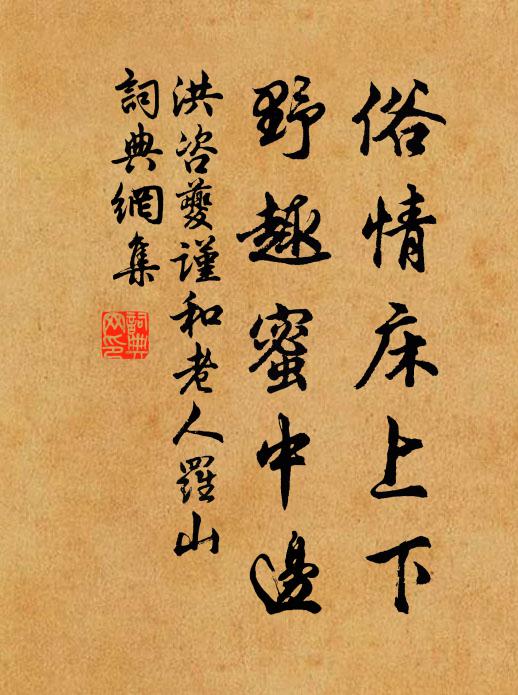 俗情床上下
野趣蜜中邊
洪咨夔謹和老人羅山
詞典網集
詞典網印